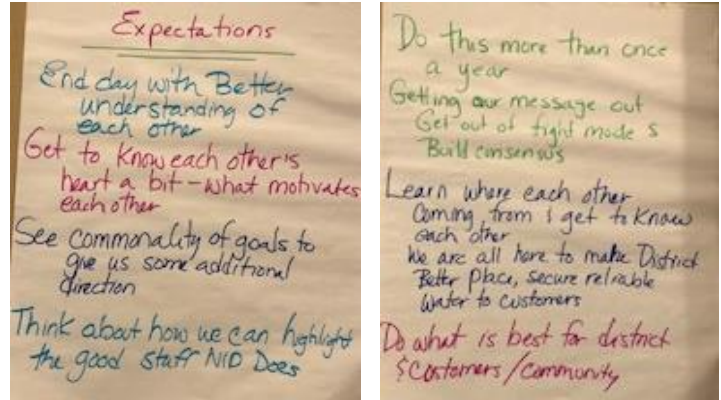 Expectations
End day with Better
understanding of
each other
Get to know each other's
heart a bit - what motivates
each other
See commonality of goals to
give us some additional
direction
Think about how we can highlight
the good staff NID Does
Do this more than once
a year
Getting our message out
Get out of fight mode &
Build consensus
Learn where each other
Coming from & get to know
each other
We are all here to make District
Better place, secure reliable
water to customers
Do what is best for district
& customers/community